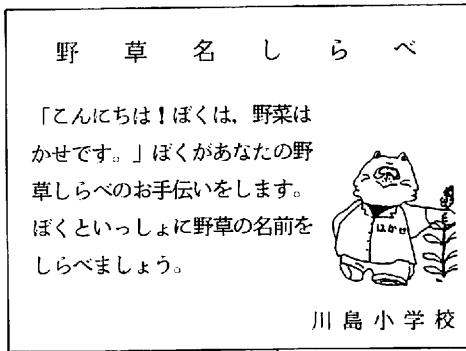 野草名しらべ
「こんにちは！ぼくは，野菜は
かせです。」ぼくがあなたの野
草しらべのお手伝いをします。
ぼくといっしょに野草の名前を
しらべましょう。
はかせ
川島小学校